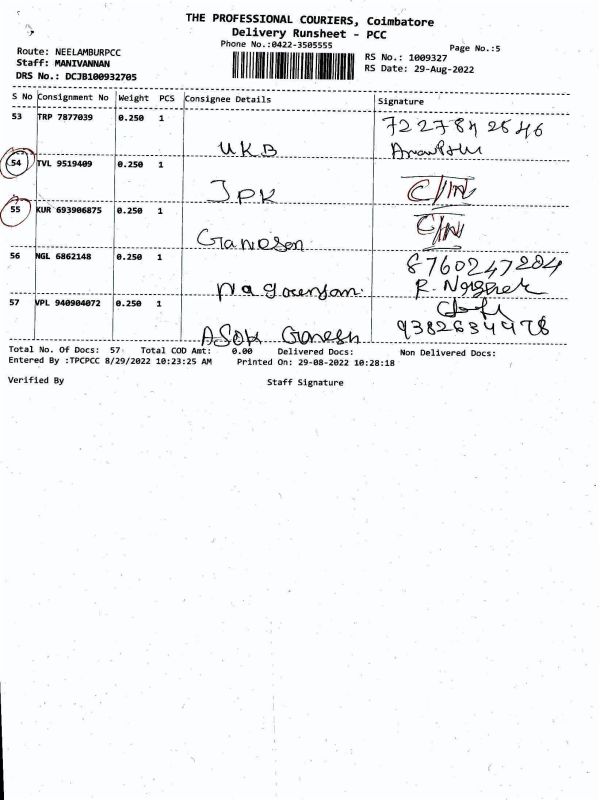 THE PROFESSIONAL COURIERS, Coimbatore
Delivery Runsheet - PCC
Phone No.:0422-3505555
Page No.:5
Route: NEELAMBURPCC
Staff: MANIVANNAN
DRS No.: DCJB100932705
RS No.: 1009327
RS Date: 29-Aug-2022
S No Consignment No Weight PCS Consignee Details Signature
53 TRP 7877039 0.250 1 7227842546
UKB
54 TVL 9519409 0.250 1
JPK C/IN
55 KUR 693906875 0.250 1 C/IN
Ganesan
56 NGL 6862148 0.250 1 8760247204
R.
57 VPL 940904072 0.250 1
ASOK Ganesh 9382634478
Total No. Of Docs: 57 Total COD Amt: 0.00 Delivered Docs: Non Delivered Docs:
Entered By :TPCPCC 8/29/2022 10:23:25 AM Printed On: 29-08-2022 10:28:18
Verified By Staff Signature